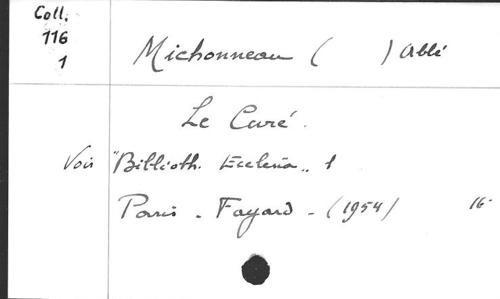 Coll.
116
1
Michonneau ( ) Abbé
Le Curé.
Voir "Biblioth. Ecclesia" 1
Paris - Fayard - (1954) 16-